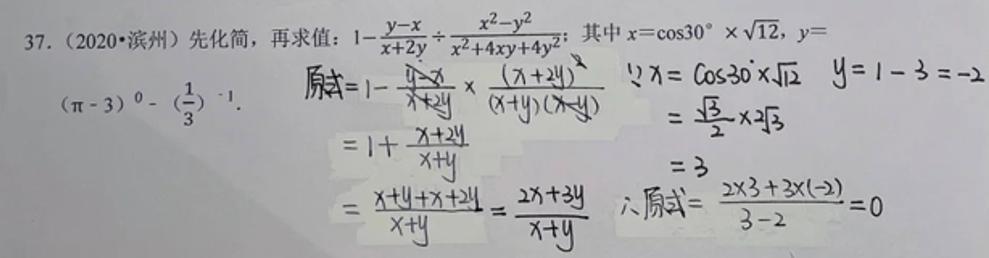 37.（2020•滨州）先化简，再求值：1-\frac{y-x}{x+2y}÷\frac{x^2-y^2}{x^2+4xy+4y^2}；其中 x=cos30°×√12，y=
（π-3）^0-（\frac{1}{3}）^{-1}.
原式=1-\frac{y-x}{x+2y}×\frac{(x+2y)^2}{(x+y)(x-y)}
=1+\frac{x+2y}{x+y}
=\frac{x+y+x+2y}{x+y}=\frac{2x+3y}{x+y}
∵x=cos30°×√12 y=1-3=-2
=\frac{√3}{2}×2√3
=3
∴原式=\frac{2×3+3×(-2)}{3-2}=0